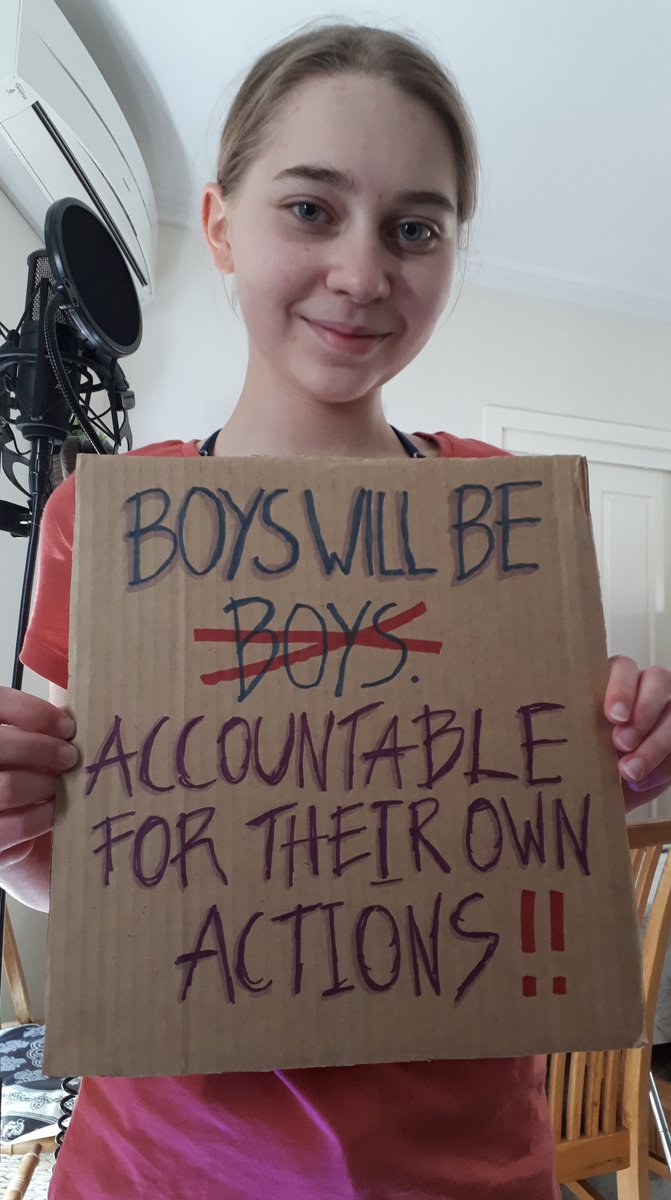 BOYS WILL BE
BOYS.
ACCOUNTABLE
FOR THEIR OWN
ACTIONS!!